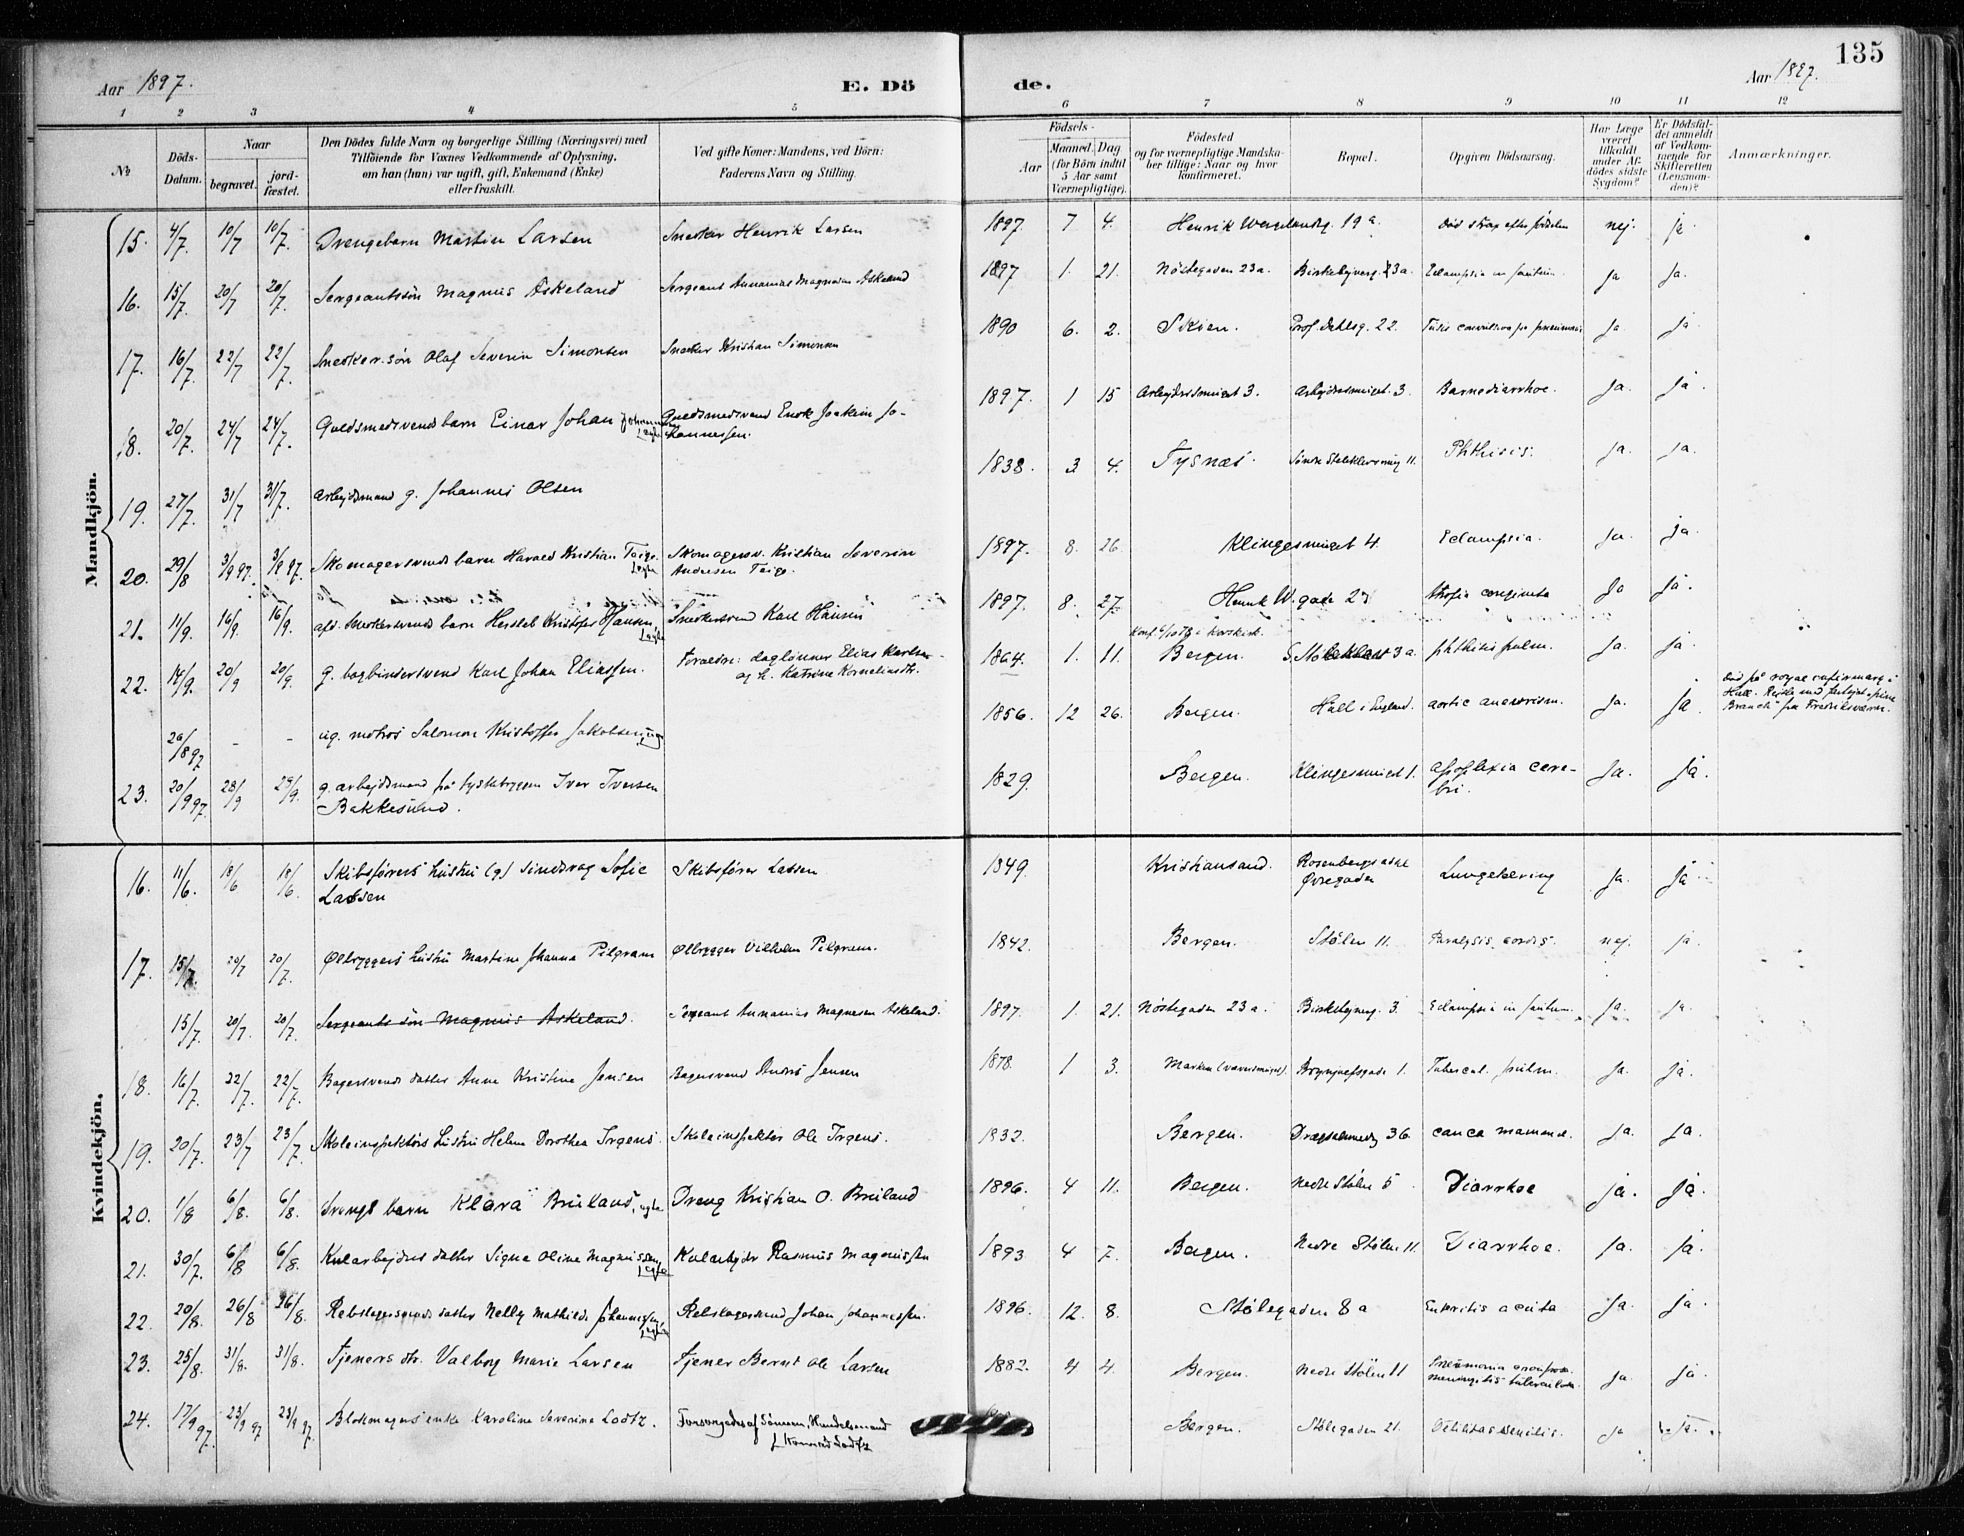 135
Aar 1897.
E. Dö
de.
Aar 1897.
1 2 3 4 5 6 7 8 9 10 11 12
№
Döds-Datum.
Naar
begravet.
jord-fæstet.
Den Dödes fulde Navn og borgerlige Stilling (Næringsvei) med
Tilföiende for Voxnes Vedkommende af Oplysning,
om han (hun) var ugift, gift, Enkemand (Enke)
eller fraskilt.
Ved gifte Koner: Mandens, ved Börn:
Faderens Navn og Stilling.
Födsels-
Aar
Maaned. Dag
(for Börn indtil
5 Aar samt
Værnepligtige).
Födested
og for værnepligtige Mandska-
ber tillige: Naar og hvor
konfirmeret.
Bopæl.
Opgiven Dödsaarsag.
Har Læge
været
tilkaldt
under Af-
dödes sidste
Sygdom?
Er Dödsfal-
det anmeldt
af Vedkom-
mende for
Skifteretten
(Lensman-
den)?
Anmærkninger.
Mandkjön.
15. 4/7 10/7 10/7. Drengebarn Martin Larsen Snedker Henrik Larsen 1897 7 4. Henrik Wergelandsg. 19a. död strax efter födselen nej. ja
16. 15/7. 20/7 20/7. Sergeantssön Magnus Askeland Sergeant Annanias Magnesen Askeland 1897 1. 21. Nöstegaden 23a. Birkebeynerg. 3a. Eclampsia infantum. ja ja.
17. 16/7. 22/7 22/7. Snedkersön Olaf Severin Simonsen Snedker Kristian Simonsen 1890 6. 2. Skien. Prof. Dahlsg. 22. ja. ja
18. 20/7. 24/7 24/7. Guldsmedsvends barn Einar Johan Johannessen Guldsmedsvend Enok Joakim Jo-
hannessen. 1897. 1 15 Arbeidersmuget 3. Arbeidersmuget. 3 Barnediarrhoe. ja. ja
19. 27/7. 31/7 31/7. Arbeidsmand g. Johannes Olsen 1838. 3 4. Tysnæs. 11. Phthisis. ja. ja.
20. 29/8 3/9 97. 3/9 97. Skomagersvends barn Harald Kristian Teige. Skomagersv. Kristian Severin
Andersen Teige. 1897. 8. 26. Klingesmuget 4. Eclampsia. ja. ja
21. 11/9. 16/9. 16/9. Snedkersvends barn Hersleb Kristofer Hansen, Snedkersvend Karl Hansen 1897 8. 27. Henrik W. gade 27 ja ja.
22. 14/9. 20/9 20/9. g. bogbindersvend Karl Johan Eliassen. Forældre: daglönner Elias Karlsen
og h. Katrine Korneliusdtr. 1864. 1. 11. Bergen. 3a. phthisis pulm. ja. ja
26/8 97 - - ug. matros Salomon Kristoffer Jakobsen 1856. 12 26. Bergen. Hull i England. aortic aneurism. ja. ja död på royal infirmary i
Hull.
23. 20/9 97. 28/9 29/9. g. arbeidsmand på tyskebryggen Iver Iversen
Bakkesund. 1829. Bergen. Klingesmuget 1. apoplexia cere-
bri. ja. ja.
Kvindekjön.
16. 11/6. 18/6 18/6. Skibsförers hustru (g) Sofie
Lassen Skibsförer Lassen 1849. Kristiansand. Rosenbergs
Övregaden Lungetæring ja. ja
17. 15/7. 20/7 20/7. Ölbryggers hustru Martine Johanna Pilgram Ölbrygger Vilhelm Pilgram. 1842. Bergen. Stölen 11. Paralysis cordis. nej. ja
15/7 20/7. 20/7. Sergeants sön Magnus Askeland. Sergeant Annanias Magnesen Askeland. 1897 1. 21. Nöstegaden 23a. 3. Eclampsia infantum. ja. ja.
18. 16/7. 22/7. 22/7. Bagersvends datter Anne Kristine Jensen Bagersvend Jensen 1878. 1 3. Marken Brynjulfsgade 1. Tubercul. pulm. ja. ja.
19. 20/7. 23/7 23/7. Skoleinspektörs hustru Helene Dorothea Irgens. Skoleinspektör Ole Irgens. 1832. Bergen. 36. cancer mammae. ja. ja.
20. 1/8 6/8. 6/8. Drengs barn Klara Breiland, Dreng Kristian O. Breiland 1896. 4 11. Bergen. Nedre Stölen 5 Diarrhoe ja. ja.
21. 30/7. 6/8 6/8. Kularbeiders datter Signe Oline Magnussen Kularbeider Rasmus Magnussen 1893 4 7. Bergen. Nedre Stölen 11. Diarrhoe. ja. ja.
22. 20/8. 26/8 26/8. Rebslagersvends datter Nelly Mathilde Johannessen, Rebslagersvend Johan Johannessen. 1896. 12. 8. Stölegaden 8a Enteritis acuta ja. ja
23. 25/8. 31/8. 31/8. Tjeners dtr. Valborg Marie Larsen Tjener Bernt Ole Larsen 1882. 4 4. Bergen. Nedre Stölen 11 Pneumonia
meningitis ja. ja
24. 17/9 97. 23/9 97 23/9 97. Blokmagers enke Karoline Severine Lodtz. Forsörgedes af Sönnen, Handelsmand
Konrad Lodtz Bergen. Stölegaden 21. senilis. ja ja.